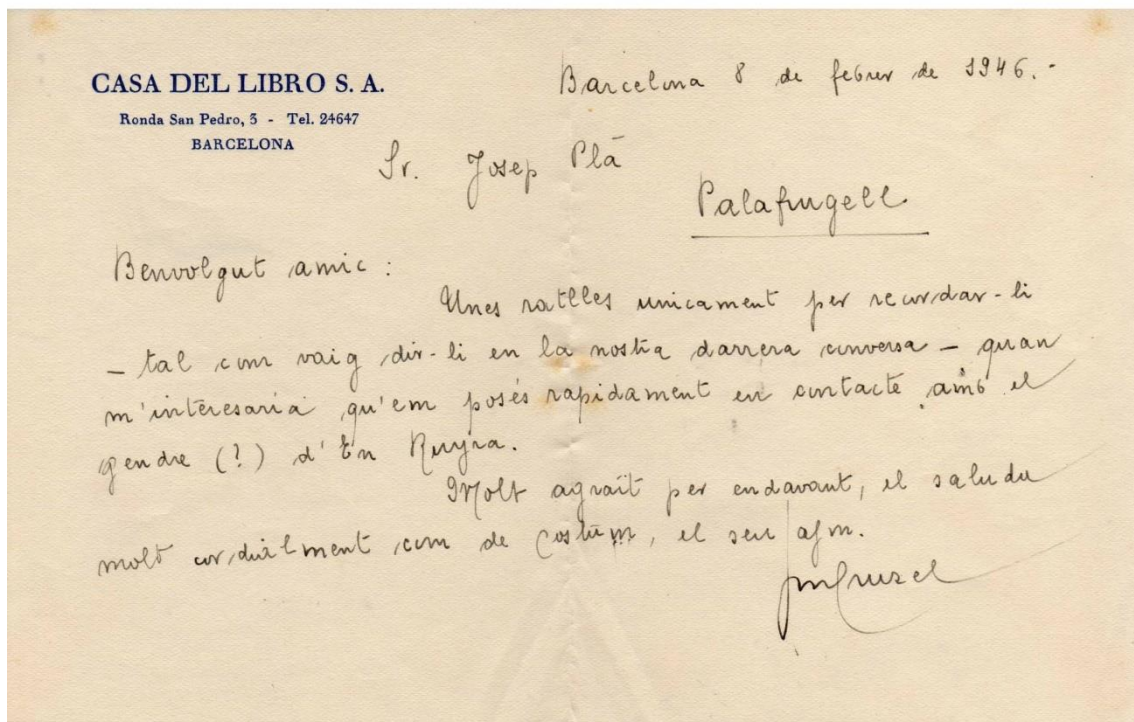 CASA DEL LIBRO S. A.
Ronda San Pedro, 3 - Tel. 24647
BARCELONA
Barcelona 8 de febrer de 1946.-
Sr. Josep Plà
Palafrugell
Benvolgut amic:
Unes ratlles unicament per recordar-li
- tal com vaig dir-li en la nostra darrera conversa - quan
m'intéresaria qu'em posés rapidament en contacte amb el
gendre (?) d'En Ruyra.
Molt agraït per endavant, el saluda
molt cordialment com de costum, el seu afm.